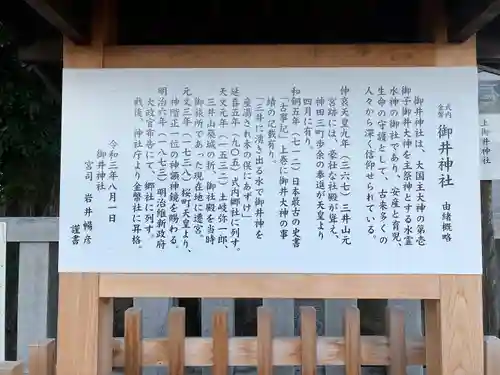 式内
金幣
御井神社
由緒概略
御井神社は、大国主大神の第壱
御子御井大神を主祭神とする水霊
水神の御社であり、安産と育児、
生命の守護として、古来多くの
人々から深く信仰せられて居る。
仲哀天皇九年（三六七）三井山元
宮跡には、豪壮な社殿が聳え、
神田三町歩余の奉進が天皇より
四月に有り。
和銅五年（七一二）日本最古の史書
「古事記」上巻に御井大神の事
績の記載有り。
「三井に湧き出る水で御井神を
産湯され木の俣にあずけ」
延喜五年（九〇五）式内郷社に列す。
天文元年（一五三二）土岐弥一郎、
三井山築城の砌、御社殿を当時
御旅所であった現在地に遷宮。
元文三年（一七三八）桜町天皇より、
神階正一位の神額神鏡を賜わる。
明治六年（一八七三）明治維新政府
大政官布告にて、郷社に列す。
戦後、神社庁より金幣社に昇格。
令和三年八月一日
御井神社
宮司 岩井暢彦
謹書
上御井神社